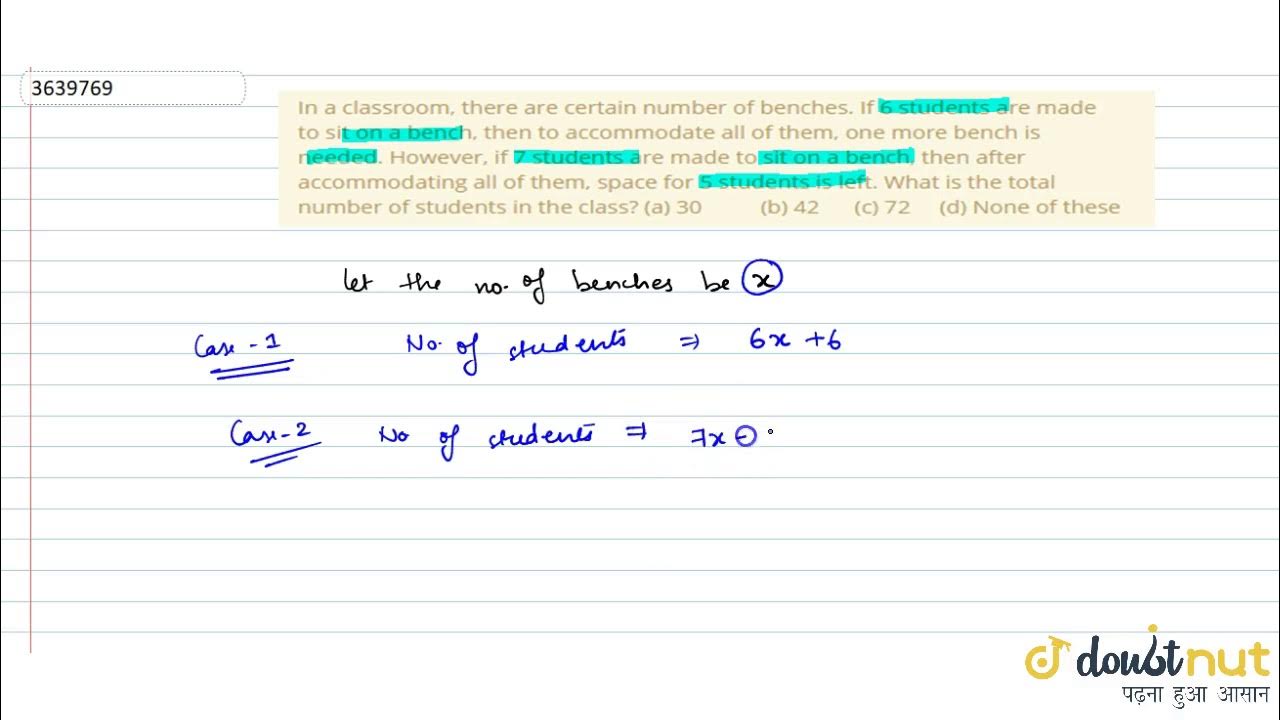 3639769
In a classroom, there are certain number of benches. If 6 students are made
to sit on a bench, then to accommodate all of them, one more bench is
needed. However, if 7 students are made to sit on a bench, then after
accommodating all of them, space for 5 students is left. What is the total
number of students in the class? (a) 30 (b) 42 (c) 72 (d) None of these
let the no. of benches be x
Case - 1 No. of students ⇒ 6x + 6
Case - 2 No of students ⇒ 7x -
doubtnut
पढ़ना हुआ आसान